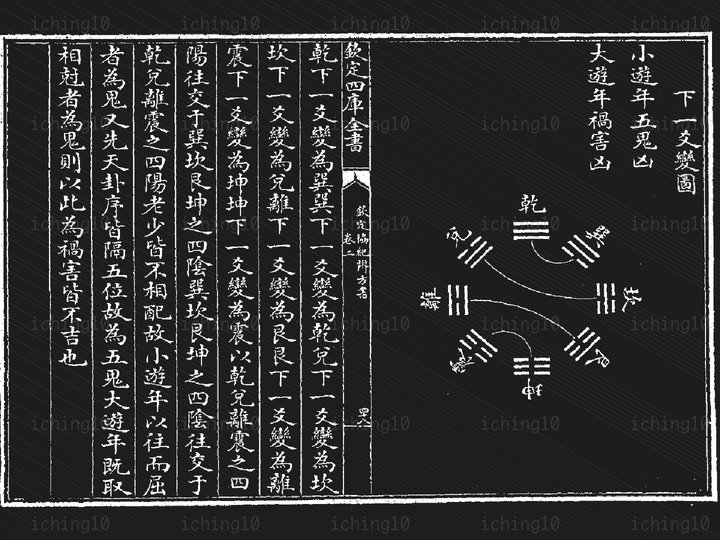 下一爻變圖
小遊年五鬼凶
大遊年禍害凶
乾
巽
坎
艮
坤
震
離
兌
欽定四庫全書
欽定協紀辨方書
卷二
四八
乾下一爻變為巽巽下一爻變為乾兌下一爻變為坎
坎下一爻變為兌離下一爻變為艮艮下一爻變為離
震下一爻變為坤坤下一爻變為震以乾兌離震之四
陽往交于巽坎艮坤之四陰巽坎艮坤之四陰往交于
乾兌離震之四陽老少皆不相配故小遊年以往而屈
者為鬼又先天卦序皆隔五位故為五鬼大遊年既取
相尅者為鬼則以此為禍害皆不吉也
iching10 iching10 iching10 iching10 iching10
iching10 iching10 iching10 iching10 iching10
iching10 iching10 iching10 iching10 iching10
iching10 iching10 iching10 iching10 iching10
iching10 iching10 iching10 iching10 iching10
iching10 iching10 iching10 iching10 iching10